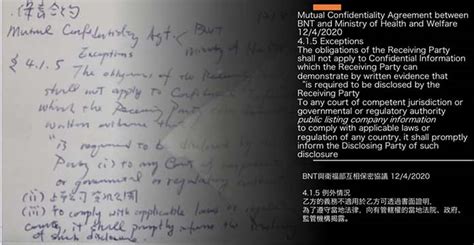 保密合約
Mutual Confidentiality Agt. BNT
Ministry of
Exceptions
§ 4.1.5 The obligations of the Receiving Party
shall not apply to Confidential
which the Receiving Party can
written evidence that
"is required to be disclosed by the
Party (i) to any Court of competent
or governmental or regulatory
(ii)
(iii) to comply with applicable laws or
country, it shall promptly inform the
of such disclosure
Mutual Confidentiality Agreement between
BNT and Ministry of Health and Welfare
12/4/2020
4.1.5 Exceptions
The obligations of the Receiving Party
shall not apply to Confidential Information
which the Receiving Party can
demonstrate by written evidence that
"is required to be disclosed by the
Receiving Party
To any court of competent jurisdiction or
governmental or regulatory authority
public listing company information
to comply with applicable laws or
regulation of any country, it shall promptly
inform the Disclosing Party of such
disclosure
BNT與衛福部互相保密協議 12/4/2020
4.1.5 例外情況
乙方的義務不適用於乙方可透過書面證明、
為了遵守當地法律，向有管轄權的當地法院、政府、
監管機構揭露。